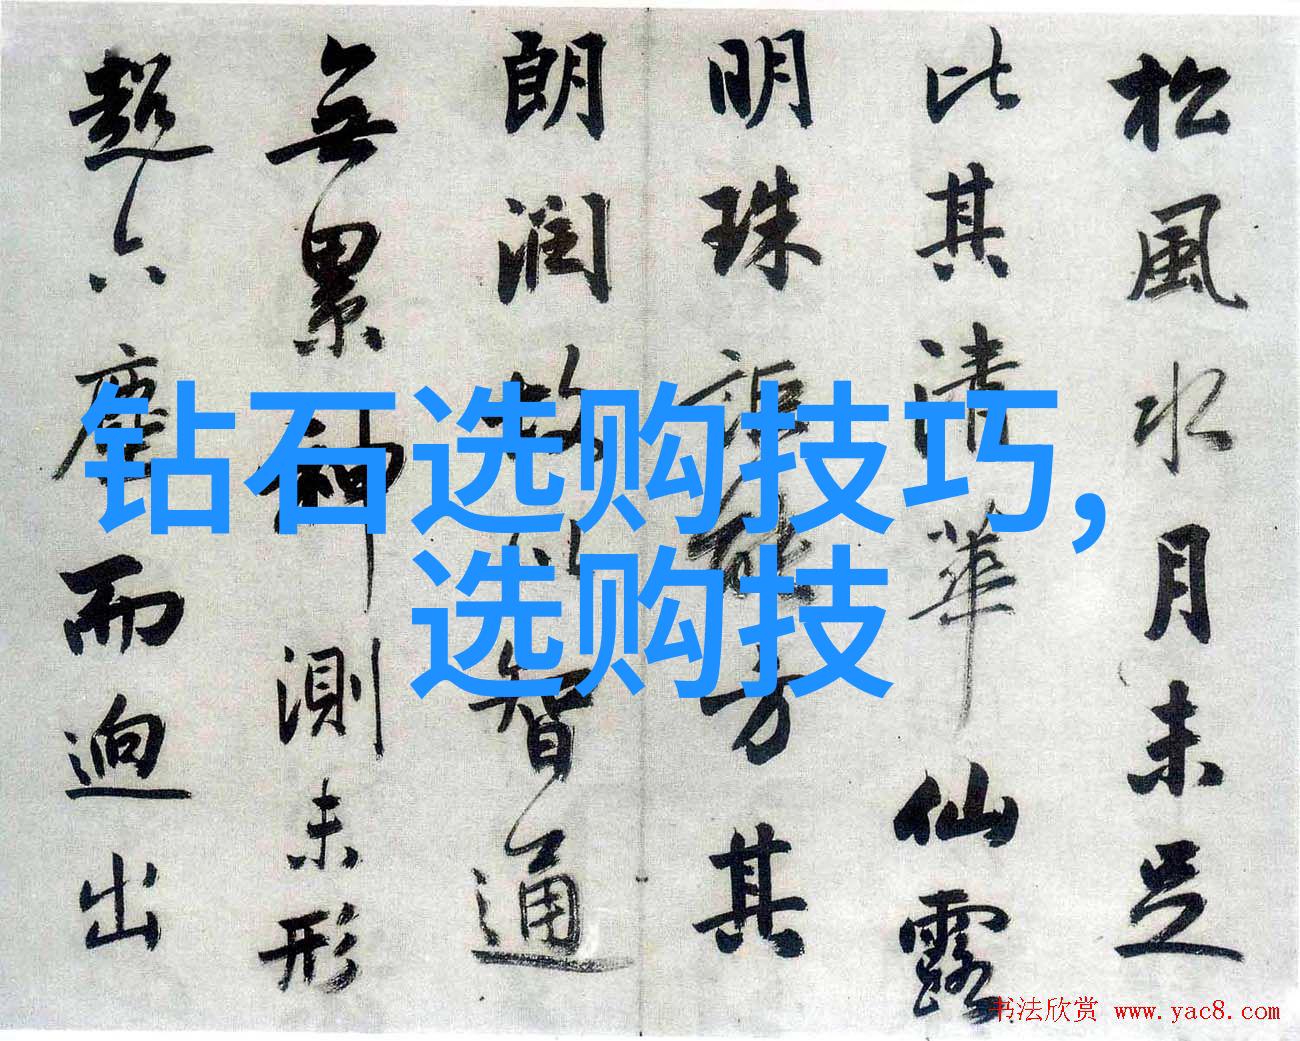 松風水月未足
比其清華仙露
明珠詎能方其
朗潤故以智通
無累神測未形
超六塵而迥出
钻石选购技巧,
选购技
书法欣赏 www.yac8.com